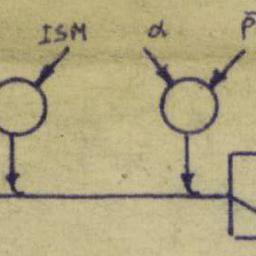 ISM α P̄